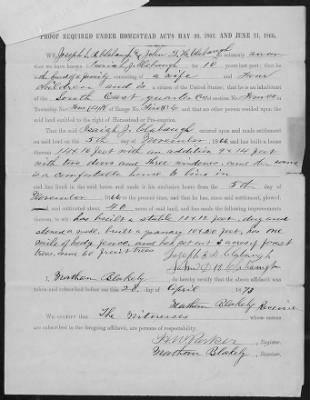 PROOF REQUIRED UNDER HOMESTEAD ACTS MAY 20, 1862, AND JUNE 21, 1866.
We, Joseph L. Clabaugh & John D. H. Clabaugh do solemnly swear
that we have known Isaiah J. Clabaugh for 10 years last past; that he
is the head of a family consisting of a wife and Four
children and is a citizen of the United States; that he is an inhabitant
of the South East quarter of section No.
and that no other person resided upon the said
land entitled to the right of Homestead or Pre-emption.
That the said Isaiah J. Clabaugh entered upon and made settlement
on said land on the 5th day of November, and has built a house
thereon 14 x 18 feet with an addition 12 x 14 feet
with two doors and three windows and the same
is a comfortable house to live in
and has lived in the said house and made it his exclusive home from the 5th day of
November to the present time, and that he has, since said settlement, plowed,
and cultivated about 40 acres of said land, and has made the following improvements
thereon, viz: has built a stable 10 x 12 feet, dug and
stoned a well, built a granary feet, has one
mile of hedge fence, and has set out acres of forest
trees, and 60 fruit trees
Joseph L. Clabaugh
John D. H. Clabaugh
I, Nathan Blakely, do hereby certify that the above affidavit was
taken and subscribed before me this 2 day of April 1873
Nathan Blakely Receiver
WE CERTIFY that The Witnesses whose names
are subscribed to the foregoing affidavit, are persons of respectability.
H. W. Parker, Register.
Nathan Blakely, Receiver.